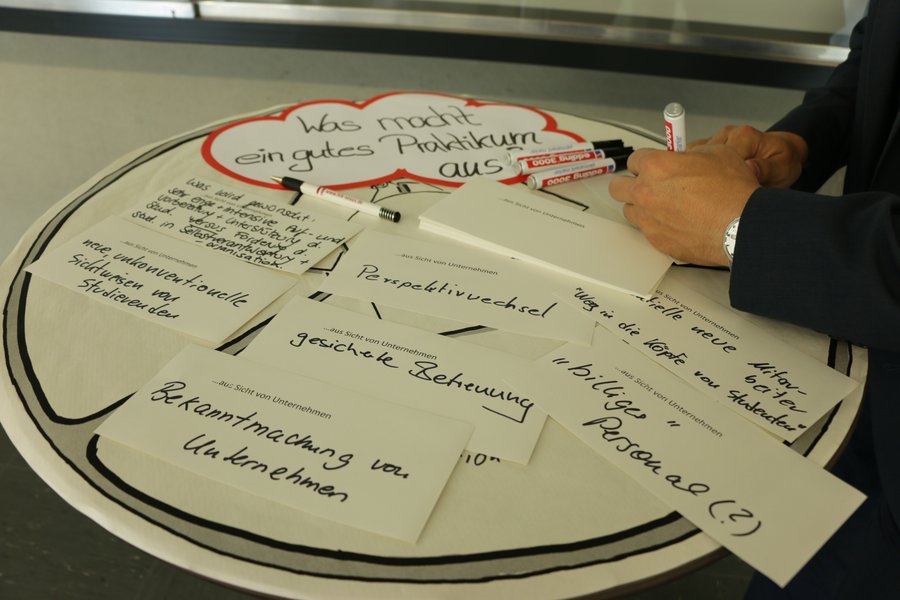 Was macht
ein gutes Praktikum
aus
edding 3000
edding 3000
Was wird gewünscht:
sehr enge + intensive
Vorbereitung + Unterstützung d.
Stud. versus Forderung d.
Stud. in Selbstverantwortung +
- organisation.
...aus Sicht von Unternehmen
neue unkonventionelle
Sichtweisen von
Studierenden
...aus Sicht von Unternehmen
...aus Sicht von Unternehmen
Perspektivwechsel
...aus Sicht von Unternehmen
neue Mitar-
beiter
"Weg in die Köpfe von
Studenten"
...aus Sicht von Unternehmen
gesicherte Betreuung
...aus Sicht von Unternehmen
"billiges"
Personal (?)
...aus Sicht von Unternehmen
Bekanntmachung von
Unternehmen